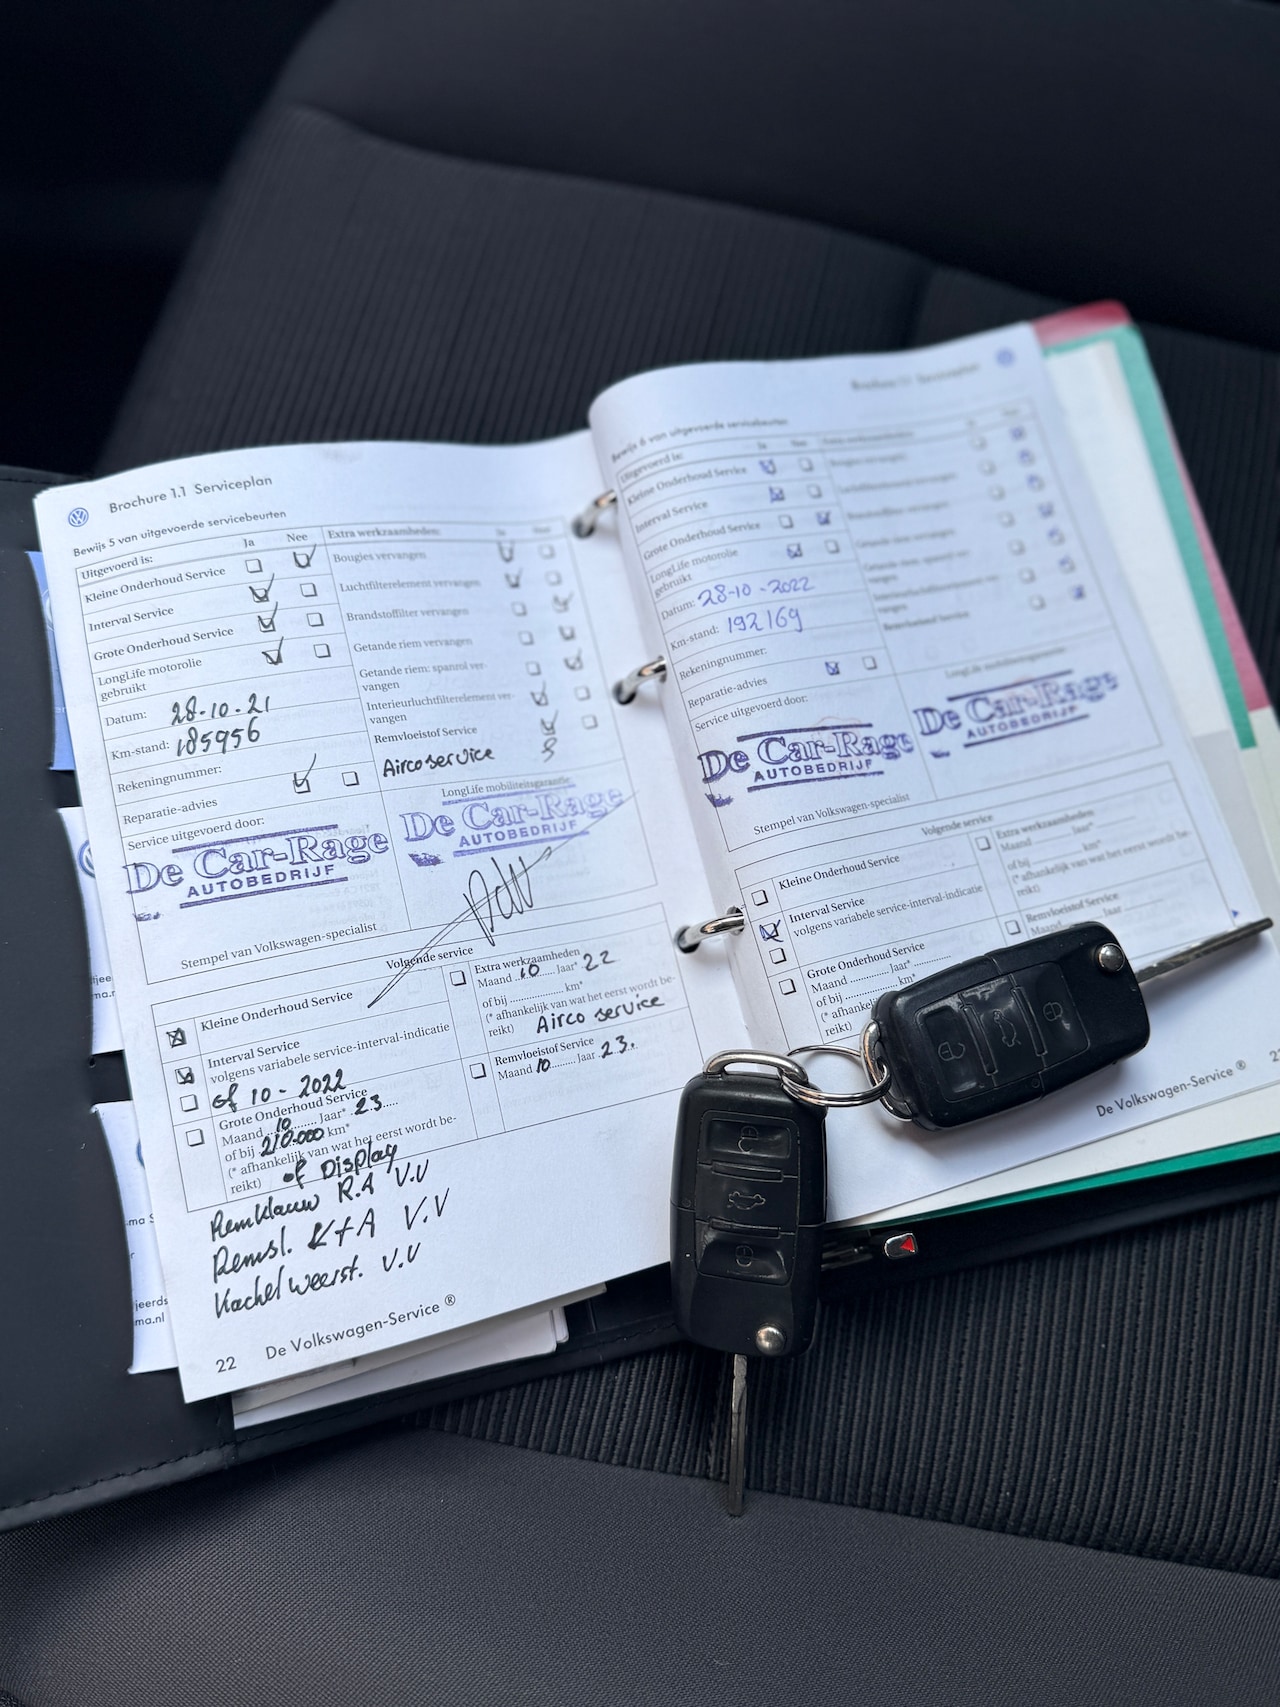 Brochure 1.1 Serviceplan
Bewijs 5 van uitgevoerde servicebeurten
Uitgevoerd is: Ja Nee
Kleine Onderhoud Service
Interval Service
Grote Onderhoud Service
LongLife motorolie
gebruikt
Datum: 28-10-21
Km-stand: 185956
Rekeningnummer:
Reparatie-advies
Service uitgevoerd door:
De Car-Rage
AUTOBEDRIJF
Stempel van Volkswagen-specialist
Extra werkzaamheden:
Bougies vervangen
Luchtfilterelement vervangen
Brandstoffilter vervangen
Getande riem vervangen
Getande riem: spanrol ver-
vangen
Interieurluchtfilterelement ver-
vangen
Remvloeistof Service
Aircoservice
LongLife mobiliteitsgarantie:
De Car-Rage
AUTOBEDRIJF
Volgende service
Kleine Onderhoud Service
Interval Service
volgens variabele service-interval-indicatie
of 10-2022
Grote Onderhoud Service
Maand 10 Jaar* 23
of bij 210.000 km*
(* afhankelijk van wat het eerst wordt be-
reikt) of Display
Extra werkzaamheden
Maand 10 Jaar* 22
of bij km*
(* afhankelijk van wat het eerst wordt be-
reikt) Airco service
Remvloeistof Service
Maand 10 Jaar 23.
Remklauw R.A V.V
Remsl. V+A V.V
Kachelweerst. V.V
22 De Volkswagen-Service ®
Brochure 1.1 Serviceplan
Bewijs 6 van uitgevoerde servicebeurten
Uitgevoerd is: Ja Nee
Kleine Onderhoud Service
Interval Service
Grote Onderhoud Service
LongLife motorolie
gebruikt
Datum: 28-10-2022
Km-stand: 192169
Rekeningnummer:
Reparatie-advies
Service uitgevoerd door:
De Car-Rage
AUTOBEDRIJF
Stempel van Volkswagen-specialist
Extra werkzaamheden:
Bougies vervangen
Luchtfilterelement vervangen
Brandstoffilter vervangen
Getande riem vervangen
Getande riem: spanrol ver-
vangen
Interieurluchtfilterelement ver-
vangen
Remvloeistof Service
LongLife mobiliteitsgarantie:
De Car-Rage
AUTOBEDRIJF
Volgende service
Kleine Onderhoud Service
Interval Service
volgens variabele service-interval-indicatie
Grote Onderhoud Service
Maand Jaar*
of bij km*
(* afhankelijk
reikt)
Extra werkzaamheden
Maand Jaar*
of bij km*
(* afhankelijk van wat het eerst wordt be-
reikt)
Remvloeistof Service
Maand Jaar
De Volkswagen-Service ®